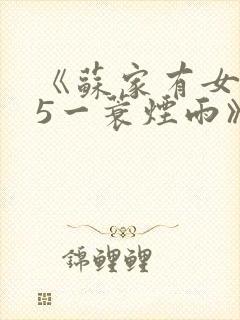 《蘇家有女
5一蓑煙雨》
錦鯉鯉